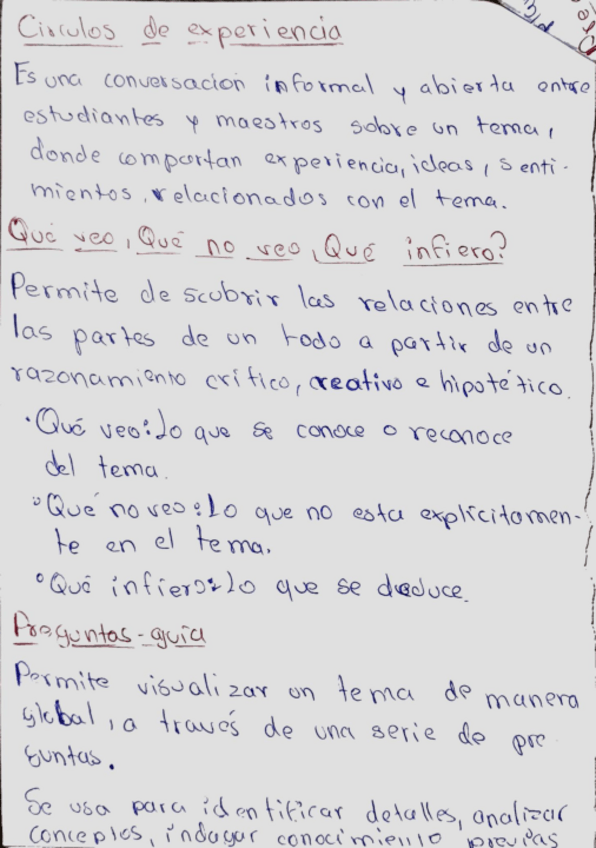 Circulos de experiencia
Es una conversación informal y abierta entre
estudiantes y maestros sobre un tema,
donde compartan experiencia, ideas, senti-
mientos, relacionados con el tema.
Qué veo, Qué no veo, Qué infiero?
Permite descubrir las relaciones entre
las partes de un todo a partir de un
razonamiento crítico, creativo e hipotético.
· Qué veo: lo que se conoce o reconoce
del tema.
° Qué no veo: Lo que no esta explícitamen-
te en el tema.
° Qué infiero: lo que se deduce.
Preguntas-guía
Permite visualizar un tema de manera
global, a través de una serie de pre
guntas.
Se usa para identificar detalles, analizar
conceptos, indagar conocimiento previas